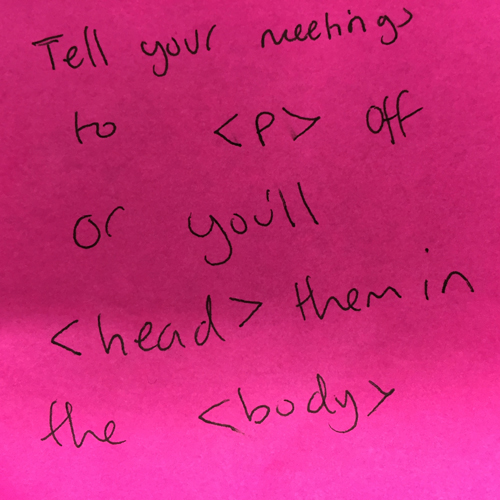 Tell your meetings
to <p> off
or you'll
<head> them in
the <body>